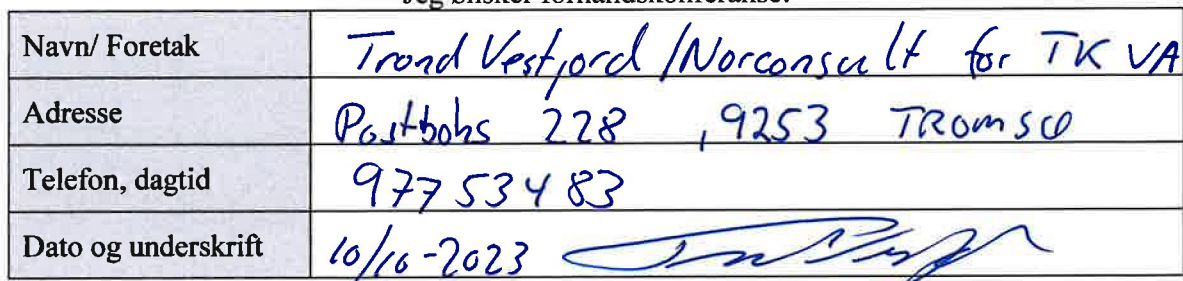 Jeg ønsker forhåndskonferanse.
Navn/ Foretak Trond Vestjord /Norconsult for TK VA
Adresse Postboks 228 , 9253 TROMSØ
Telefon, dagtid 977 53 483
Dato og underskrift 10/10-2023